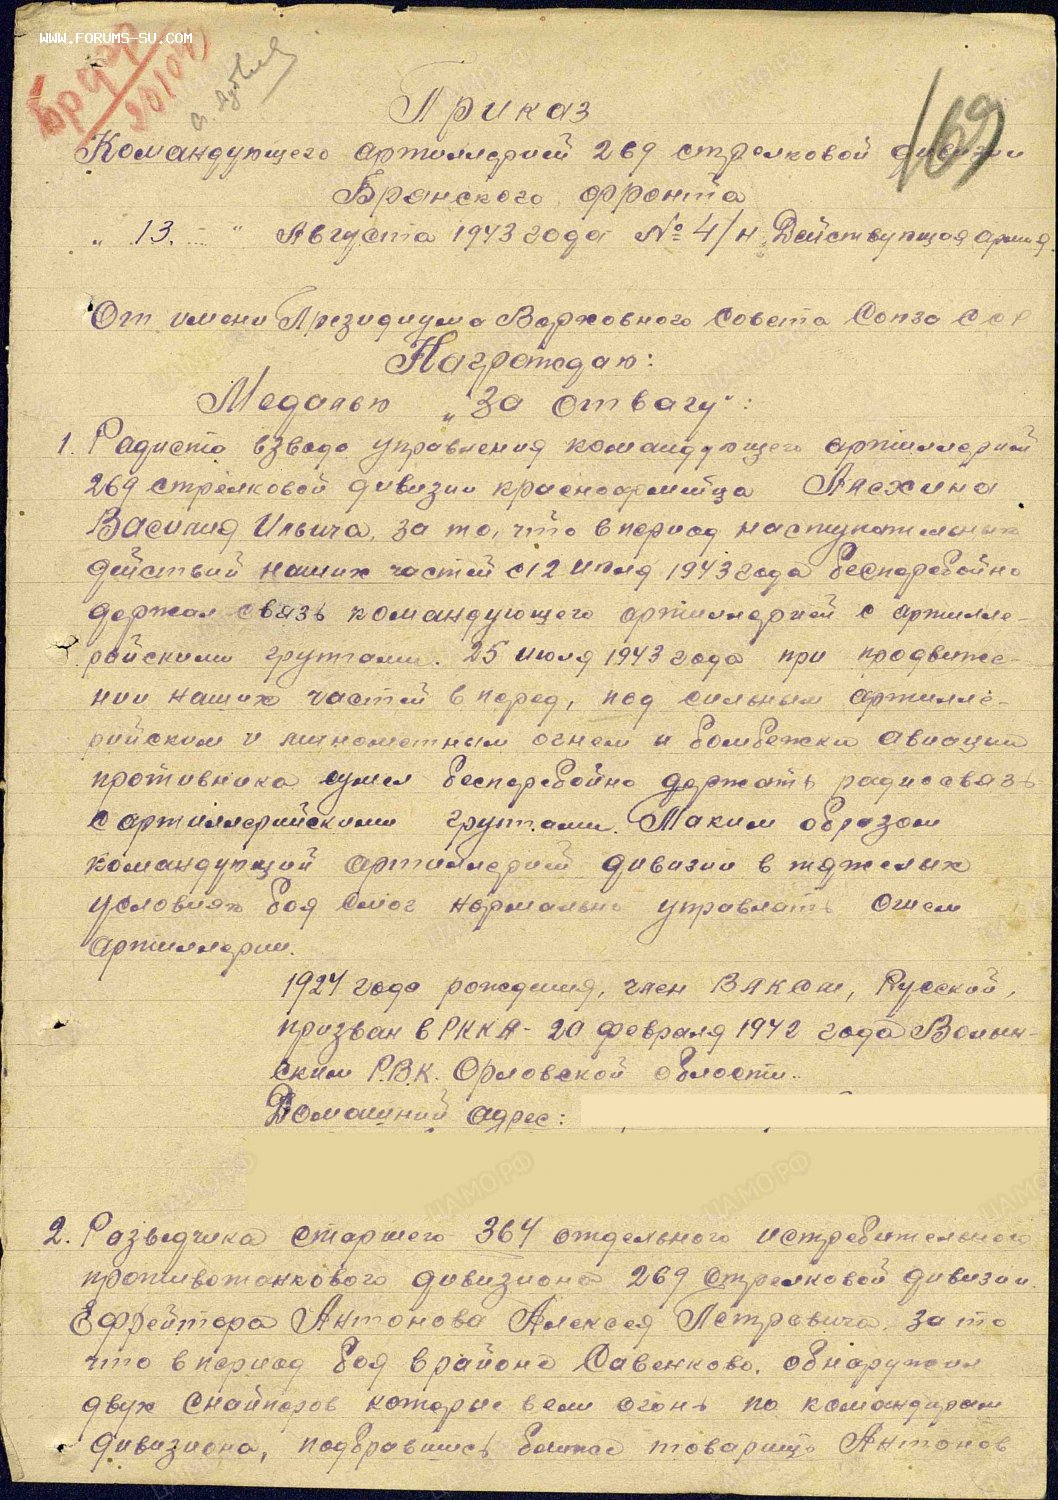 WWW.FORUMS-SU.COM
169
Приказ
Командующего артиллерией 269 стрелковой дивизии
Брянского фронта
„ 13. " Августа 1943 года № 4/н Действующая армия.
От имени Президиума Верховного Совета Союза ССР
Награждаю:
Медалью „За отвагу":
1. Радиста взвода управления командующего артиллерией
269 стрелковой дивизии красноармейца Алехина
Василия Ильича, за то, что в период наступательных
действий наших частей с 12 июля 1943 года бесперебойно
держал связь командующего артиллерией с артилле-
рийскими группами. 25 июля 1943 года при продвиже-
нии наших частей в перед, под сильным артилле-
рийским и минометным огнем и бомбежки авиации
противника сумел бесперебойно держать радиосвязь
с артиллерийскими группами. Таким образом
командующий артиллерией дивизии в тяжелых
условиях боя смог нормально управлять огнем
артиллерии.
1924 года рождения, член ВЛКСМ, Русский,
призван в РККА - 20 февраля 1942 года Волын-
ским Р.В.К. Орловской области.
Домашний адрес:
2. Разведчика старшего 364 отдельного истребительного
противотанкового дивизиона 269 стрелковой дивизии
Ефрейтора Антонова Алексея Петровича, за то
что в период боя в районе Савенково, обнаружил
двух снайперов которые вели огонь по командирам
дивизиона, подбравшись ближе товарищ Антонов
ЦАМО РФ
ЦАМО РФ